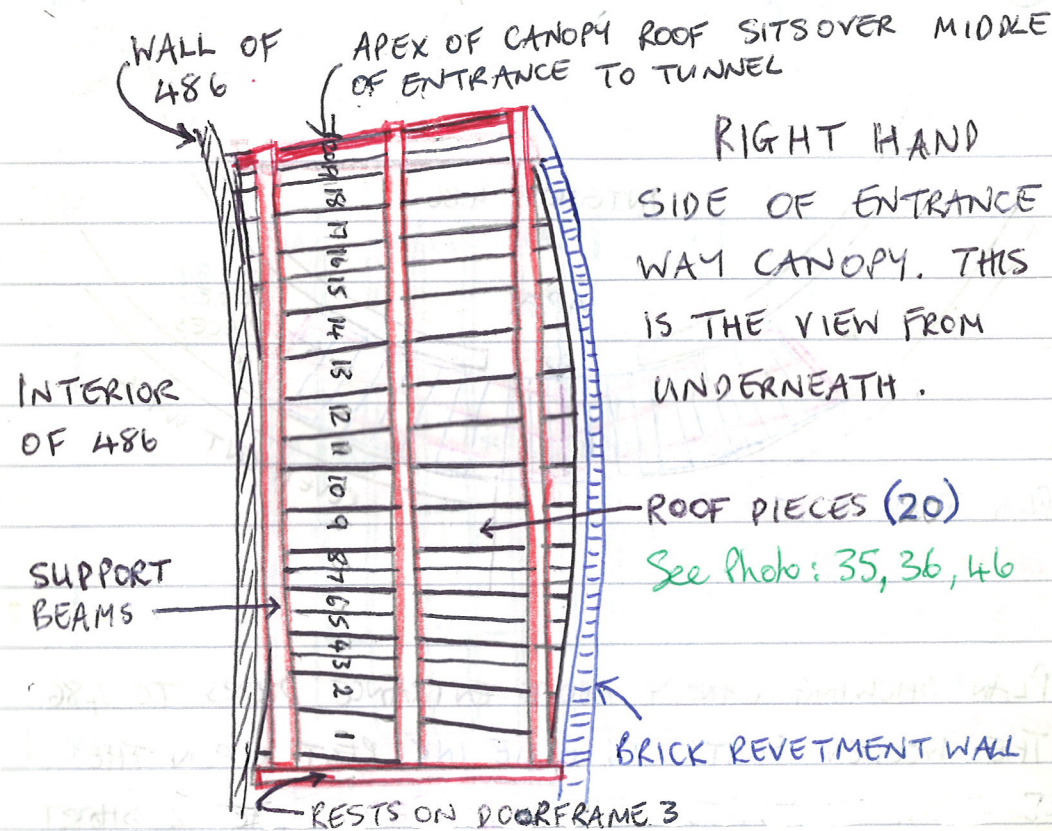 WALL OF
486
APEX OF CANOPY ROOF SITS OVER MIDDLE
OF ENTRANCE TO TUNNEL
RIGHT HAND
SIDE OF ENTRANCE
WAY CANOPY. THIS
IS THE VIEW FROM
UNDERNEATH.
INTERIOR
OF 486
SUPPORT
BEAMS
20
19
18
17
16
15
14
13
12
11
10
9
8
7
6
5
4
3
2
1
ROOF PIECES (20)
See Photo: 35, 36, 46
BRICK REVETMENT WALL
RESTS ON DOORFRAME 3